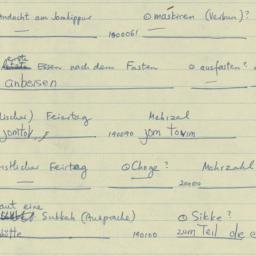 Andacht am Jomkippur ⊙ maskiren (Verbum)?
180061
erste Essen nach dem Fasten ⊙ ausfasten?
anbeisen
discher) Feiertag Mehrzal
jomtov 190090 jom tovim
istlicher Feirtag ⊙ Choge? Mehrzahl
20000
aut eine
Sukkah (Aussprache) ⊙ Sikke?
hütte 190100 zum Teil die e